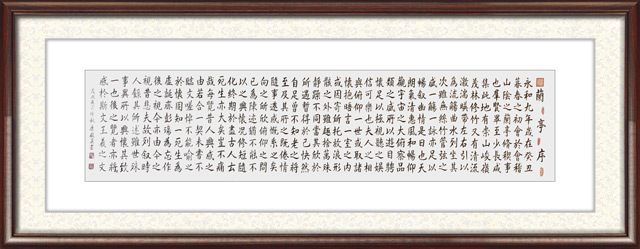 蘭亭序
永和九年歲在癸丑
暮春之初會於會稽
山陰之蘭亭修禊事
也群賢畢至少長咸
集此地有崇山峻嶺
茂林修竹又有清流
激湍映帶左右引以
為流觴曲水列坐其
次雖無絲竹管弦之
盛一觴一詠亦足以
暢敘幽情是日也天
朗氣清惠風和暢仰
觀宇宙之大俯察品
類之盛所以遊目騁
懷足以極視聽之娛
信可樂也夫人之相
與俯仰一世或取諸
懷抱晤言一室之內
或因寄所託放浪形
骸之外雖趣捨萬殊
靜躁不同當其欣於
所遇暫得於己快然
自足曾不知老之將
至及其所之既倦情
隨事遷感慨係之矣
向之所欣俯仰之間
已為陳迹猶不能不
以之興懷況修短隨
化終期於盡古人云
死生亦大矣豈不痛
哉每覽昔人興感之
由若合一契未嘗不
臨文嗟悼不能喻之
於懷固知一死生為
虛誕齊彭殤為妄作
後之視今亦由今之
視昔悲夫故列敘時
人錄其所述雖世殊
事異所以興懷其致
一也後之覽者亦將
感於斯文王羲之文